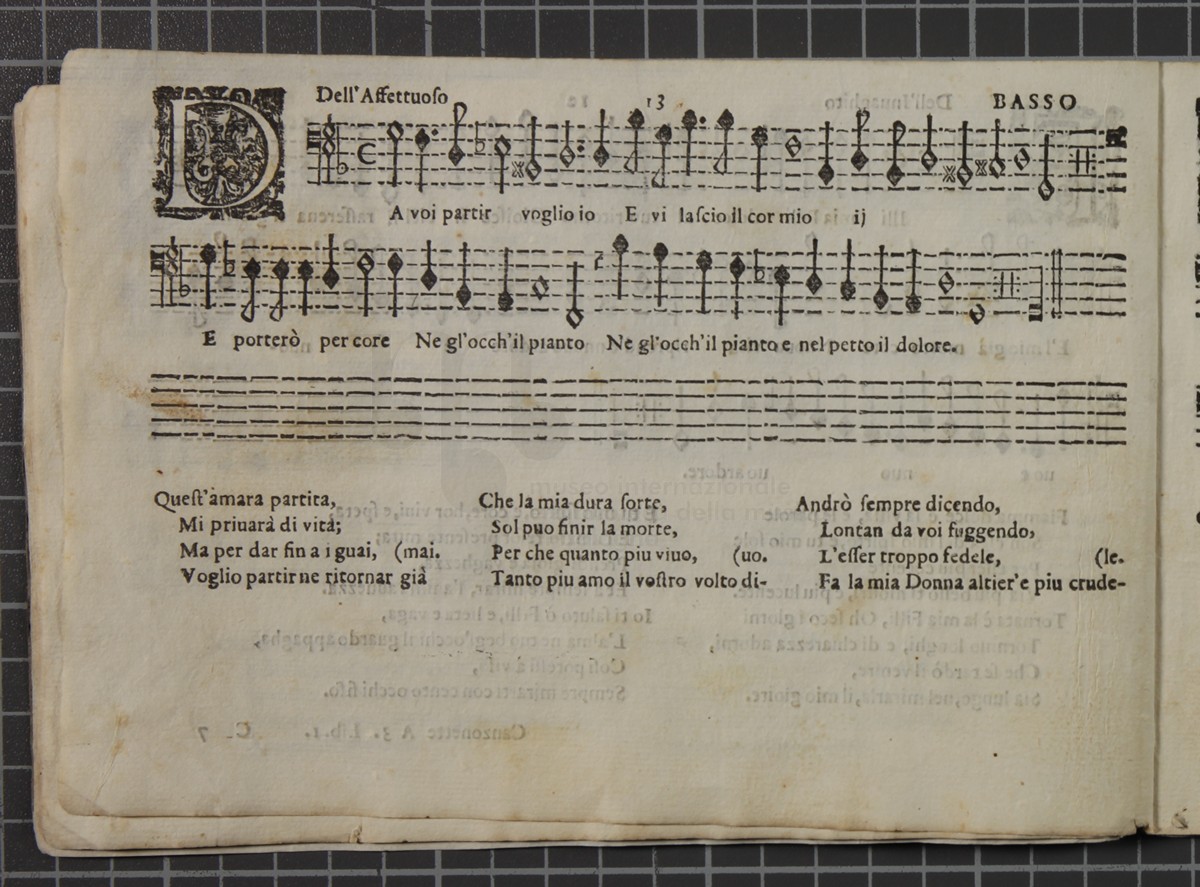 Dell'Affettuoſo 13 BASSO
DA voi partir voglio io E vi laſcio il cor mio ij
E porterò per core Ne gl'occh'il pianto Ne gl'occh'il pianto e nel petto il dolore.
Queſt'amara partita,
Mi priuarà di vita;
Ma per dar fin a i guai, (mai.
Voglio partir ne ritornar già
Che la mia dura ſorte,
Sol puo finir la morte,
Per che quanto piu viuo, (uo.
Tanto piu amo il voſtro volto di-
Andrò ſempre dicendo,
Lontan da voi fuggendo,
L'eſſer troppo fedele, (le.
Fa la mia Donna altier'e piu crude-
Canzonette A 3. Lib. 1. C 7